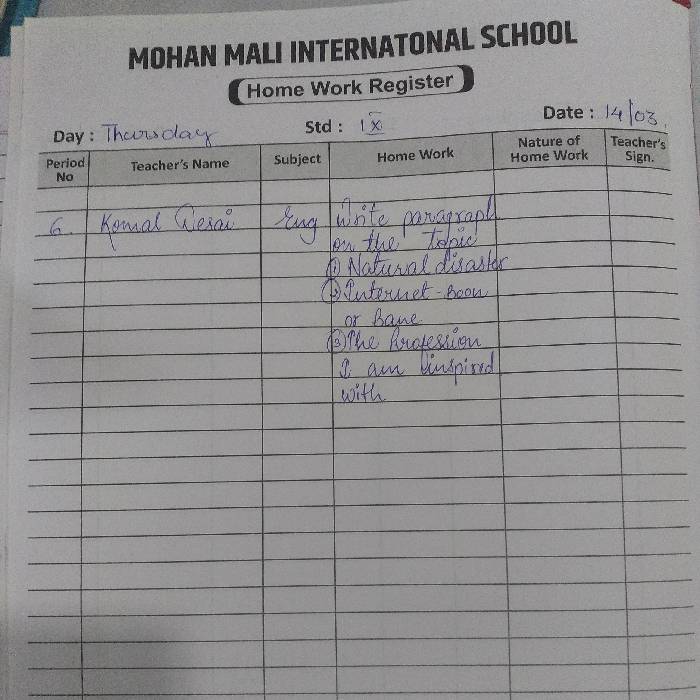 MOHAN MALI INTERNATONAL SCHOOL
Home Work Register
Day : Thursday Std : IX Date : 14/03.
Period No Teacher's Name Subject Home Work Nature of Home Work Teacher's Sign.
6. Komal Desai Eng Write paragraph
on the topic
① Natural disaster
② Internet - Boon
or Bane
③ The Profession
I am inspired
with